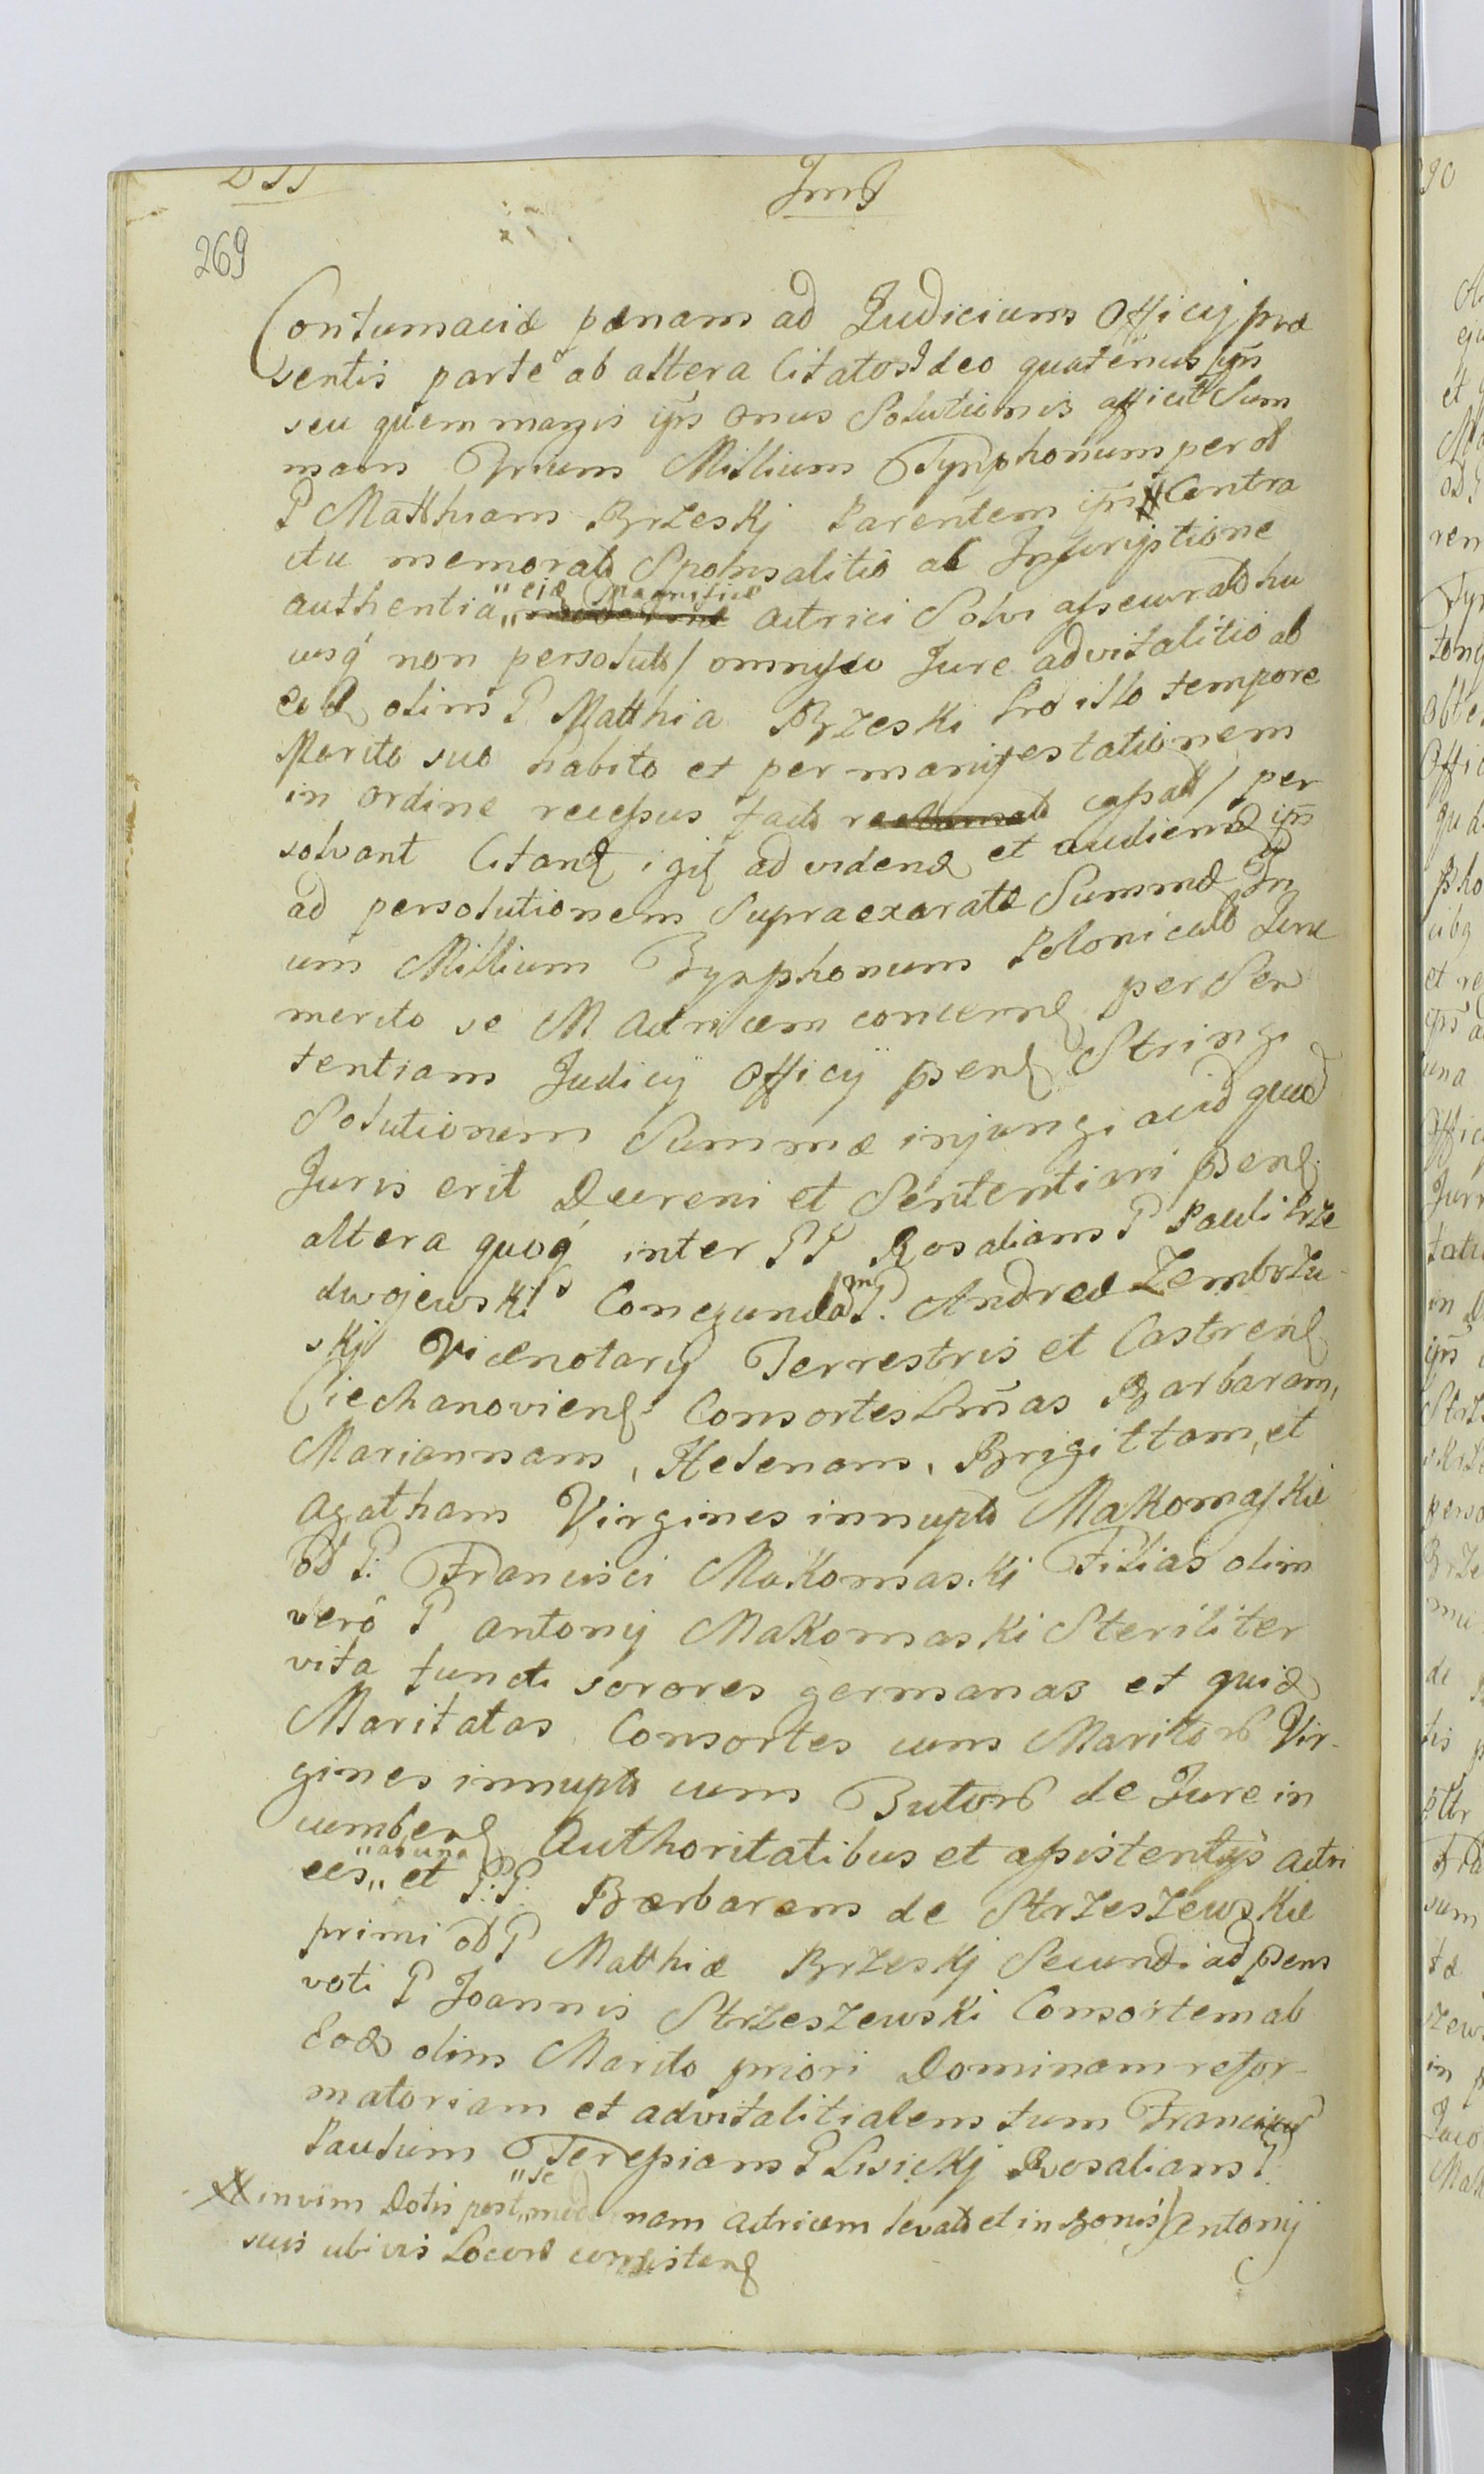 269
Contumaciæ pænam ad Judicium Officij præ
sentis parte ab altera Citatos Ideo quatenus ipsi
seu quem magis ipsis onus Solutionis afficit Sum
mam Trium Millium Tynphonum per ol
P Matthiam Brzeskj Parentem Contra
ctu memorato Sponsalitio ac Inscriptione
authentica Magnificæ actrici Solvi assecurat hu
cusq non persolut / omnyso Jure advitalitio ab
eod olim P. Matthia Brzeski pro illo tempore
Marito suo habito et per manifestationem
in ordine recessus fact cassat / per
solvant Citand igit ad vidend et audiend ipsis
ad persolutionem Supraexaratæ Summæ Tri
um Millium Tynphonum Polonical Jure
merito se M Actricem concern per Sen
tentiam Judicij Officij psent Stringi
Solutionem Summæ injungi acid quod
Juris erit Decreni et Sententiari psent
altera quoq inter PP Rosaliam P Pauli Prze
dwojewski Conegundam P. Andreæ Zembrzu
skj Vicenotarij Terrestris et Castrens
Ciechanoviens Consortes Barbaram,
Mariannam, Helenam, Brigittam, et
Agatham Virgines innupts Makomaskie
ol P: Francisci Makomaski Filias olim
vero P Antonij Makomaski Steriliter
vita functi sorores germanas et quid
Maritatas Consortes cum Maritor Vir-
gines innupts cum Tutor de Jure in
cumbend Authoritatibus et assistentijs Actri
ces " ab una " et P:P: Barbaram de Strzeszewskie
primi ol P Matthiæ Brzeskj Secundi ad psens
voti P Joannis Strzeszewski Consortem ab
Eod olim Marito priori Dominam refor-
matoriam et advitalitialem tum Franciscum
Paulum Teressiam P Lisickj Rosaliam P.
Antonij
in vim Dotis post nam actricem levat et in Bonis
suis ubivis Locor consistend